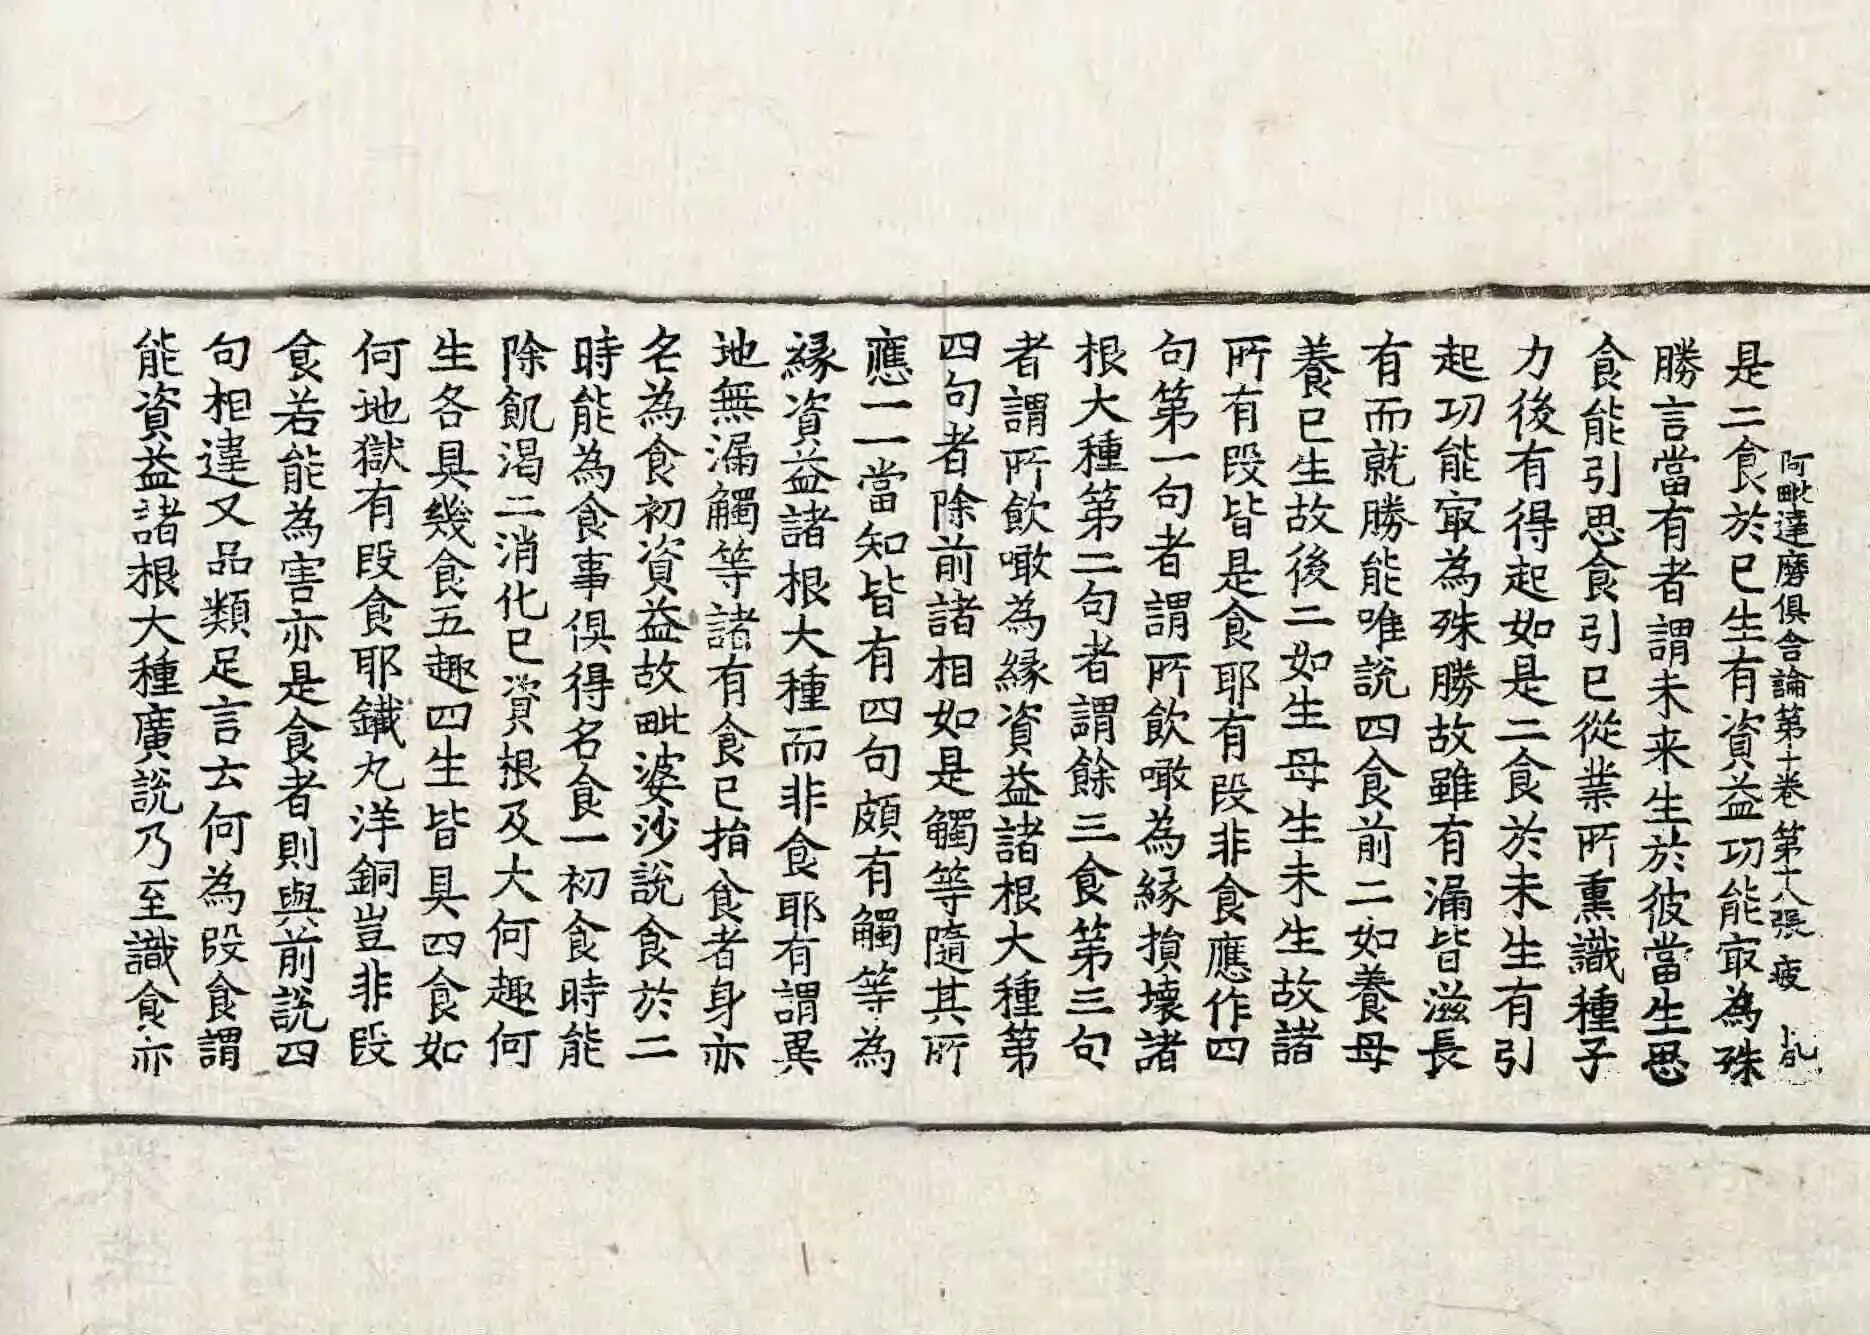 阿毗達磨俱舍論第十卷 第十八張 疲
是二食於已生有資益功能㝡為殊
勝言當有者謂未来生於彼當生思
食能引思食引已從業所熏識種子
力後有得起如是二食於未生有引
起功能㝡為殊勝故雖有漏皆滋長
有而就勝能唯說四食前二如養母
養已生故後二如生母生未生故諸
所有段皆是食耶有段非食應作四
句第一句者謂所飲噉為緣損壞諸
根大種第二句者謂餘三食第三句
者謂所飲噉為緣資益諸根大種第
四句者除前諸相如是觸等隨其所
應一一當知皆有四句頗有觸等為
緣資益諸根大種而非食耶有謂異
地無漏觸等諸有食已損食者身亦
名為食初資益故毗婆沙說食於二
時能為食事俱得名食一初食時能
除飢渴二消化已資根及大何趣何
生各具幾食五趣四生皆具四食如
何地獄有段食耶鐵丸洋銅豈非段
食若能為害亦是食者則與前說四
句相違又品類足言云何為段食謂
能資益諸根大種廣說乃至識食亦